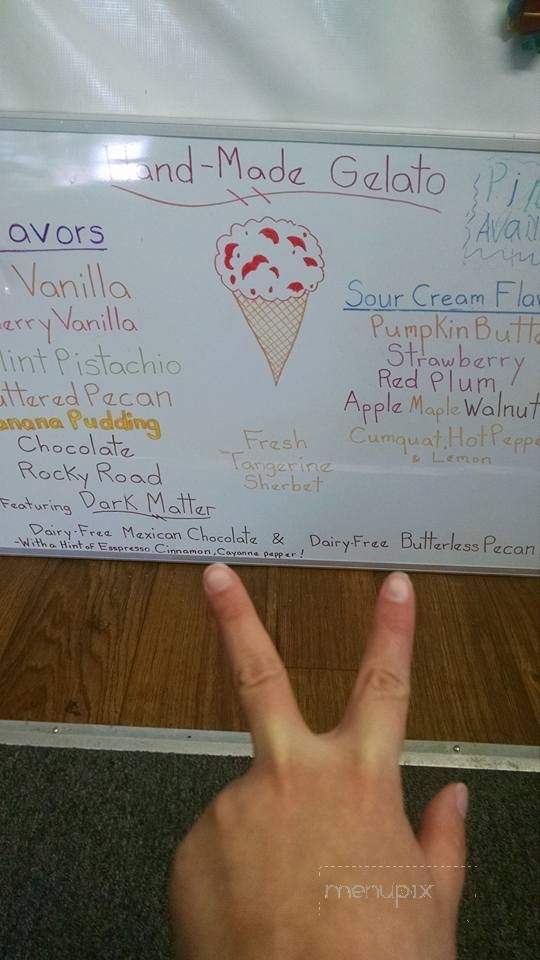 Hand-Made Gelato
avors
Vanilla
erry Vanilla
int Pistachio
uttered Pecan
anana Pudding
Chocolate
Rocky Road
Featuring Dark Matter
Fresh
Tangerine
Sherbet
Avail
Sour Cream Fla
Pumpkin Butt
Strawberry
Red Plum
Apple Maple Walnut
Cumquat, Hot Peppe
& Lemon
Dairy-Free Mexican Chocolate & Dairy-Free Butterless Pecan
-With a Hint of Esspresso, Cinnamon, Cayanne pepper!
menupix